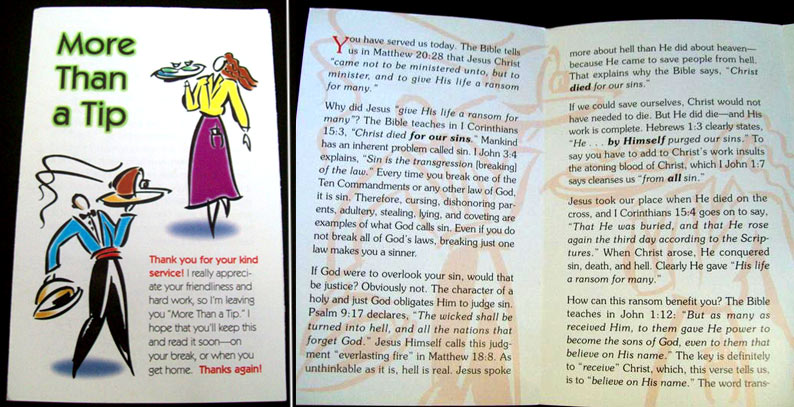 More
Than
a Tip
Thank you for your kind
service! I really appreci-
ate your friendliness and
hard work, so I'm leaving
you "More Than a Tip." I
hope that you'll keep this
and read it soon—on
your break, or when you
get home. Thanks again!
You have served us today. The Bible tells
us in Matthew 20:28 that Jesus Christ
"came not to be ministered unto, but to
minister, and to give His life a ransom
for many."
Why did Jesus "give His life a ransom for
many"? The Bible teaches in I Corinthians
15:3, "Christ died for our sins." Mankind
has an inherent problem called sin. I John 3:4
explains, "Sin is the transgression [breaking]
of the law." Every time you break one of the
Ten Commandments or any other law of God,
it is sin. Therefore, cursing, dishonoring par-
ents, adultery, stealing, lying, and coveting are
examples of what God calls sin. Even if you do
not break all of God's laws, breaking just one
law makes you a sinner.
If God were to overlook your sin, would that
be justice? Obviously not. The character of a
holy and just God obligates Him to judge sin.
Psalm 9:17 declares, "The wicked shall be
turned into hell, and all the nations that
forget God." Jesus Himself calls this judg-
ment "everlasting fire" in Matthew 18:8. As
unthinkable as it is, hell is real. Jesus spoke
more about hell than He did about heaven—
because He came to save people from hell.
That explains why the Bible says, "Christ
died for our sins."
If we could save ourselves, Christ would not
have needed to die. But He did die—and His
work is complete. Hebrews 1:3 clearly states,
"He . . . by Himself purged our sins." To
say you have to add to Christ's work insults
the atoning blood of Christ, which I John 1:7
says cleanses us "from all sin."
Jesus took our place when He died on the
cross, and I Corinthians 15:4 goes on to say,
"That He was buried, and that He rose
again the third day according to the Scrip-
tures." When Christ arose, He conquered
sin, death, and hell. Clearly He gave "His life
a ransom for many."
How can this ransom benefit you? The Bible
teaches in John 1:12: "But as many as
received Him, to them gave He power to
become the sons of God, even to them that
believe on His name." The key is definitely
to "receive" Christ, which, this verse tells us,
is to "believe on His name." The word trans-